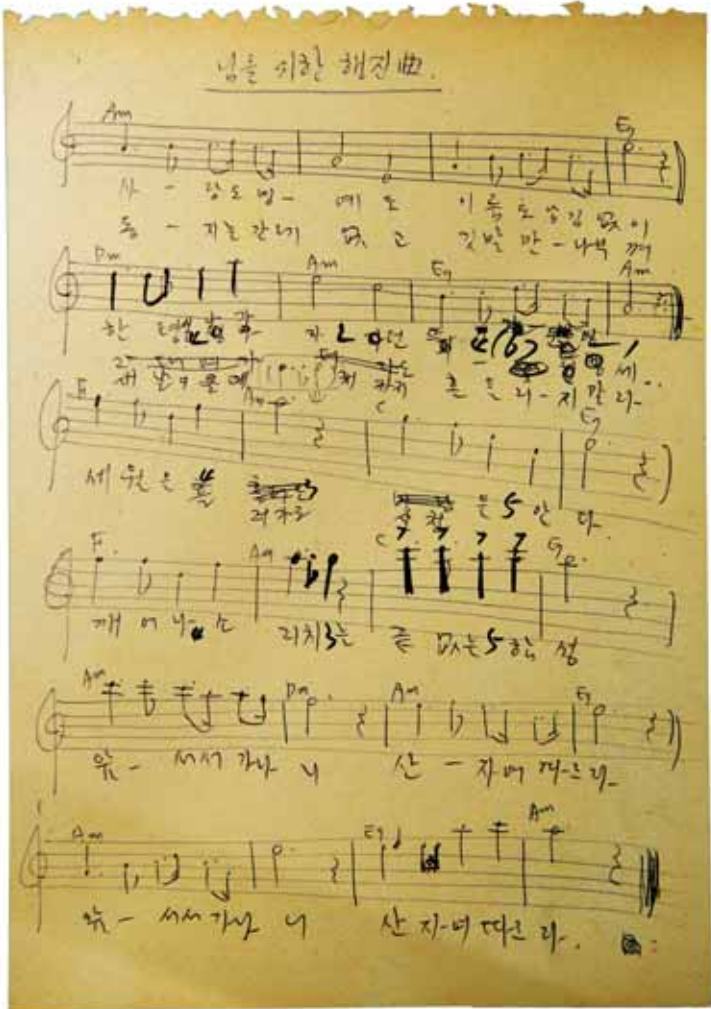 님을 위한 행진曲.
Am E7
사 - 랑도 명 - 예도 이름도 남김 없이
동 - 지는 간데 없고 깃발만 - 나부껴
Dm Am E7 Am
한 평생 자
새 날이 올 때 까지 흔들리 - 지 말라 -
F Am C E7
세월은 흘 러가도 산천은 안다
F Am C G
깨어나 소 리치는 끝 없는 함성
Am Dm Am E7
앞 - 서서 가나 니 산 - 자여 따르라 -
Am E7 Am
앞 - 서서 가나 니 산 자 - 여 따르라 - .